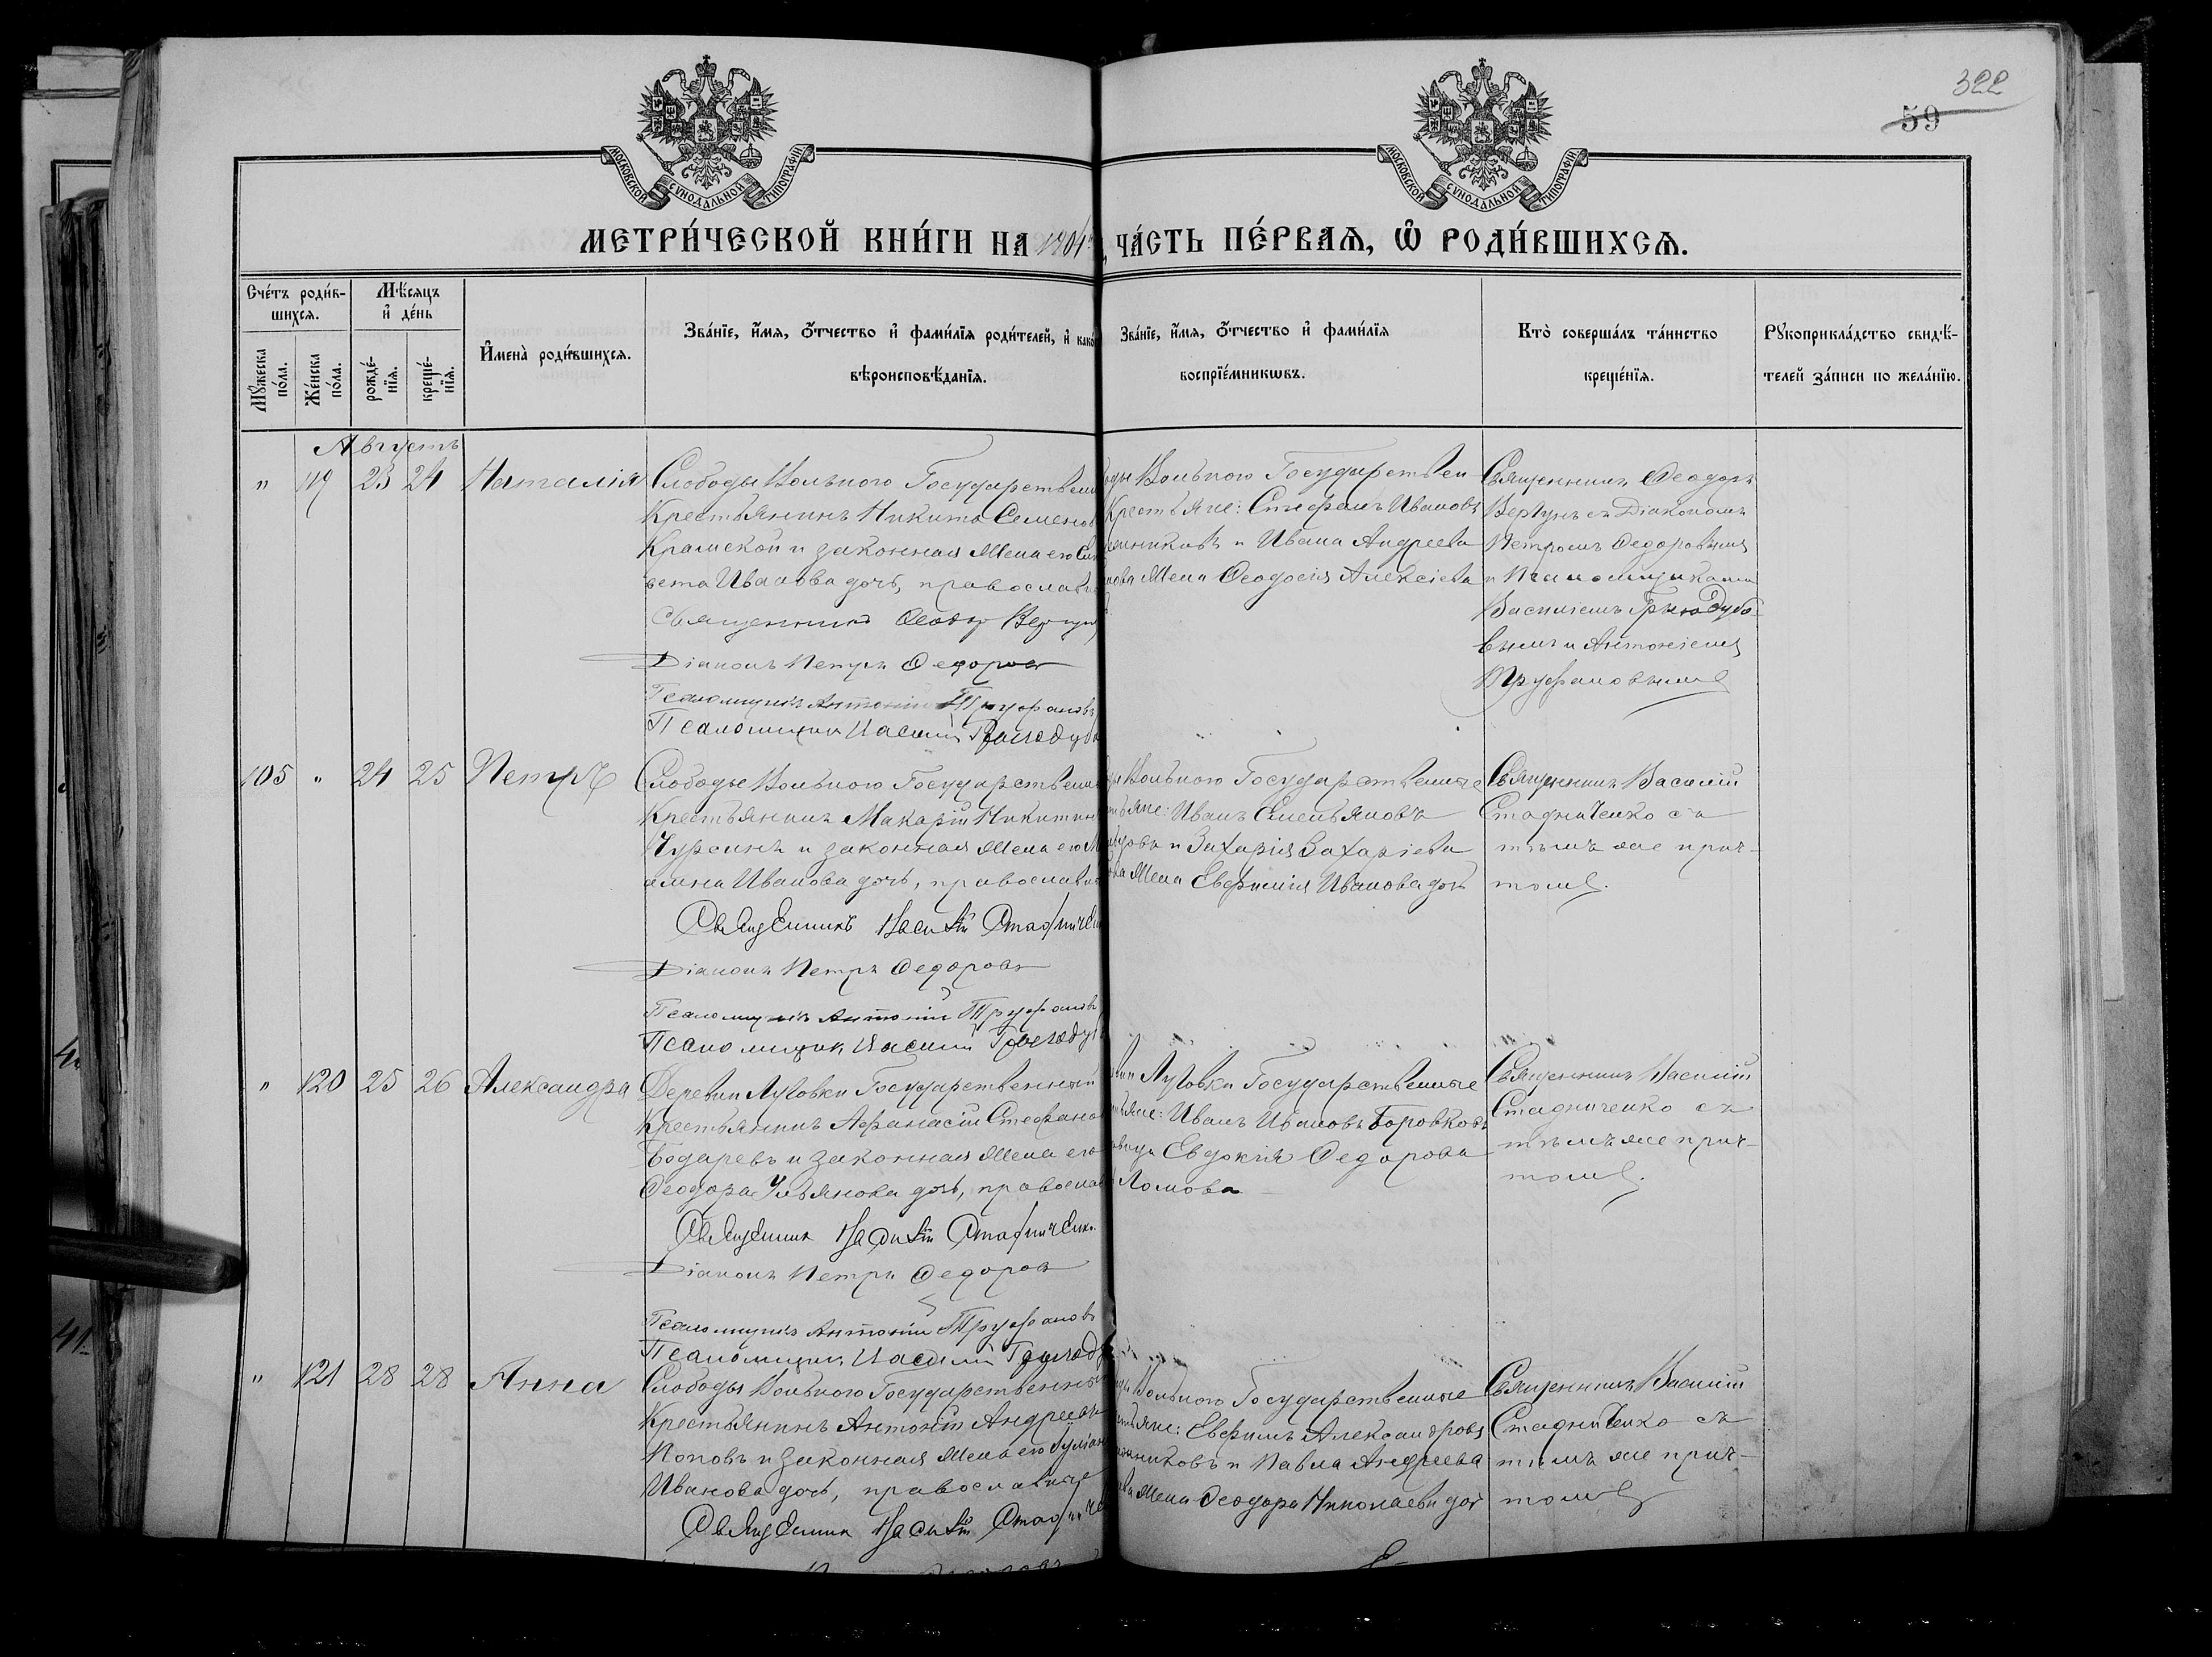 322
59
МОСКОВСКОЙ СѴНОДАЛЬНОЙ ТИПОГРАФІИ
МОСКОВСКОЙ СѴНОДАЛЬНОЙ ТИПОГРАФІИ
МЕТРИ́ЧЕСКОЙ КНИ́ГИ НА
ЧА́СТЬ ПЕ́РВАѦ, Ѽ РОДИ́ВШИХСѦ.
Сче́тъ роди́в-
шихсѧ.
Мѣ́сѧцъ
и҆ де́нь
Мꙋ́жеска по́ла.
Же́нска по́ла.
рожде́-
нїѧ.
креще́-
нїѧ.
И҆мена̀ роди́вшихсѧ.
Зва́нїе, и҆́мѧ, о҆́тчество и҆ фами́лїѧ роди́телей, и҆ како
вѣроисповѣ́данїѧ.
Зва́нїе, и҆́мѧ, о҆́тчество и҆ фами́лїѧ
воспрїе́мникѡвъ.
Кто̀ соверша́лъ та́инство
креще́нїѧ.
Рꙋкоприкла́дство свидѣ́-
телей за́писи по жела́нїю.
Августъ
" 119 23 24 Наталія
Слободы Вольного Государствен
Крестьянинъ Никита Семенов
и законная жена его
вета Иванова дочь, православ
Священникъ Ѳеодоръ Вергун
Діаконъ Петръ Ѳедоровъ
Псаломщикъ Антоній Труфановъ
Псаломщикъ Василій
Вольного Государствен
Крестьяне: Стефанъ Ивановъ
и Ивана Андреева
жена Ѳеодосія Алексіева
Священникъ Ѳеодоръ
Вергунъ съ Діакономъ
Петромъ Ѳедоровымъ
и Псаломщиками
Василіемъ
вымъ и Антоніемъ
Труфановымъ
105 " 24 25 Петръ
Слободы Вольного Государствен
Крестьянинъ Макарій Никитин
Чурсинъ и законная жена его
Иванова дочь, православн
Священникъ Василій Стадничен
Діаконъ Петръ Ѳедоровъ
Псаломщикъ Антоній Труфановъ
Псаломщикъ Василій
Вольного Государственные
Иванъ Емельяновъ
и Захарія Захаріева
жена Евфимія Иванова дочь
Священникъ Василій
Стадниченко съ
тѣмъ же прич-
томъ.
" 120 25 26 Александра
Деревни Луговки Государственный
Крестьянинъ Афанасій Стефанов
Бодаревъ и законная жена его
Ѳеодора Ульянова дочь, православ
Священникъ Василій Стадниченко
Діаконъ Петръ Ѳедоровъ
Псаломщикъ Антоній Труфановъ
Псаломщикъ Василій
Луговки Государственные
Иванъ Ивановъ Боровковъ
Евдокія Ѳедорова
Ломова
Священникъ Василій
Стадниченко съ
тѣмъ же прич-
томъ.
" 121 28 28 Анна
Слободы Вольного Государственный
Крестьянинъ Антоній Андреевъ
Поповъ и законная жена его
Иванова дочь, православные
Священникъ Василій Стадниче
Вольного Государственные
Евфимъ Александровъ
и Павла Андреева
жена Ѳеодора Николаева доч
Священникъ Василій
Стадниченко съ
тѣмъ же прич-
томъ